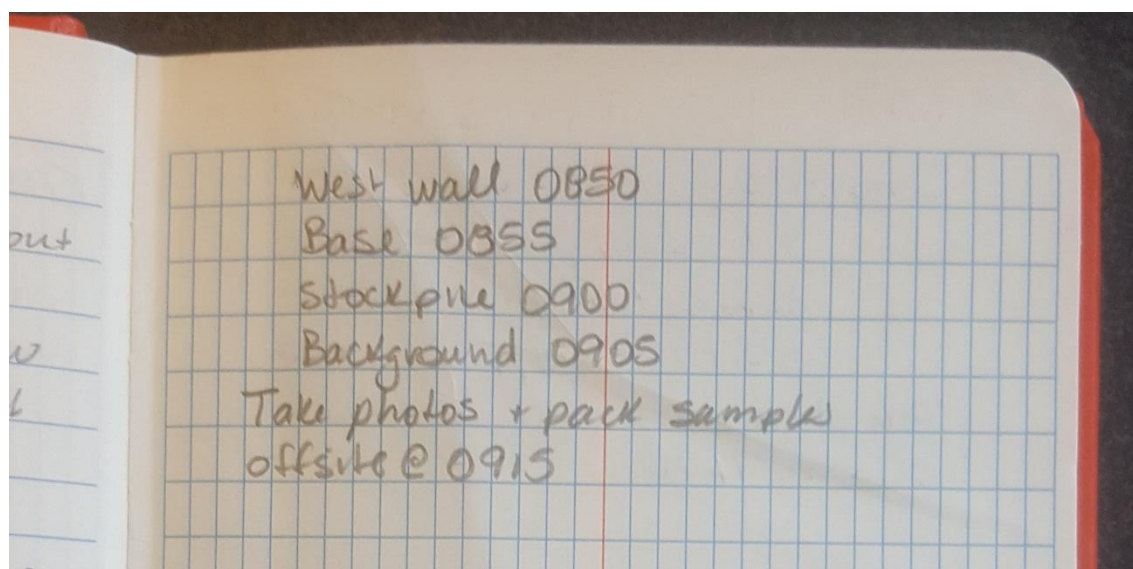 West wall 0850
Base 0855
Stockpile 0900
Background 0905
Take photos + pack samples
offsite @ 0915